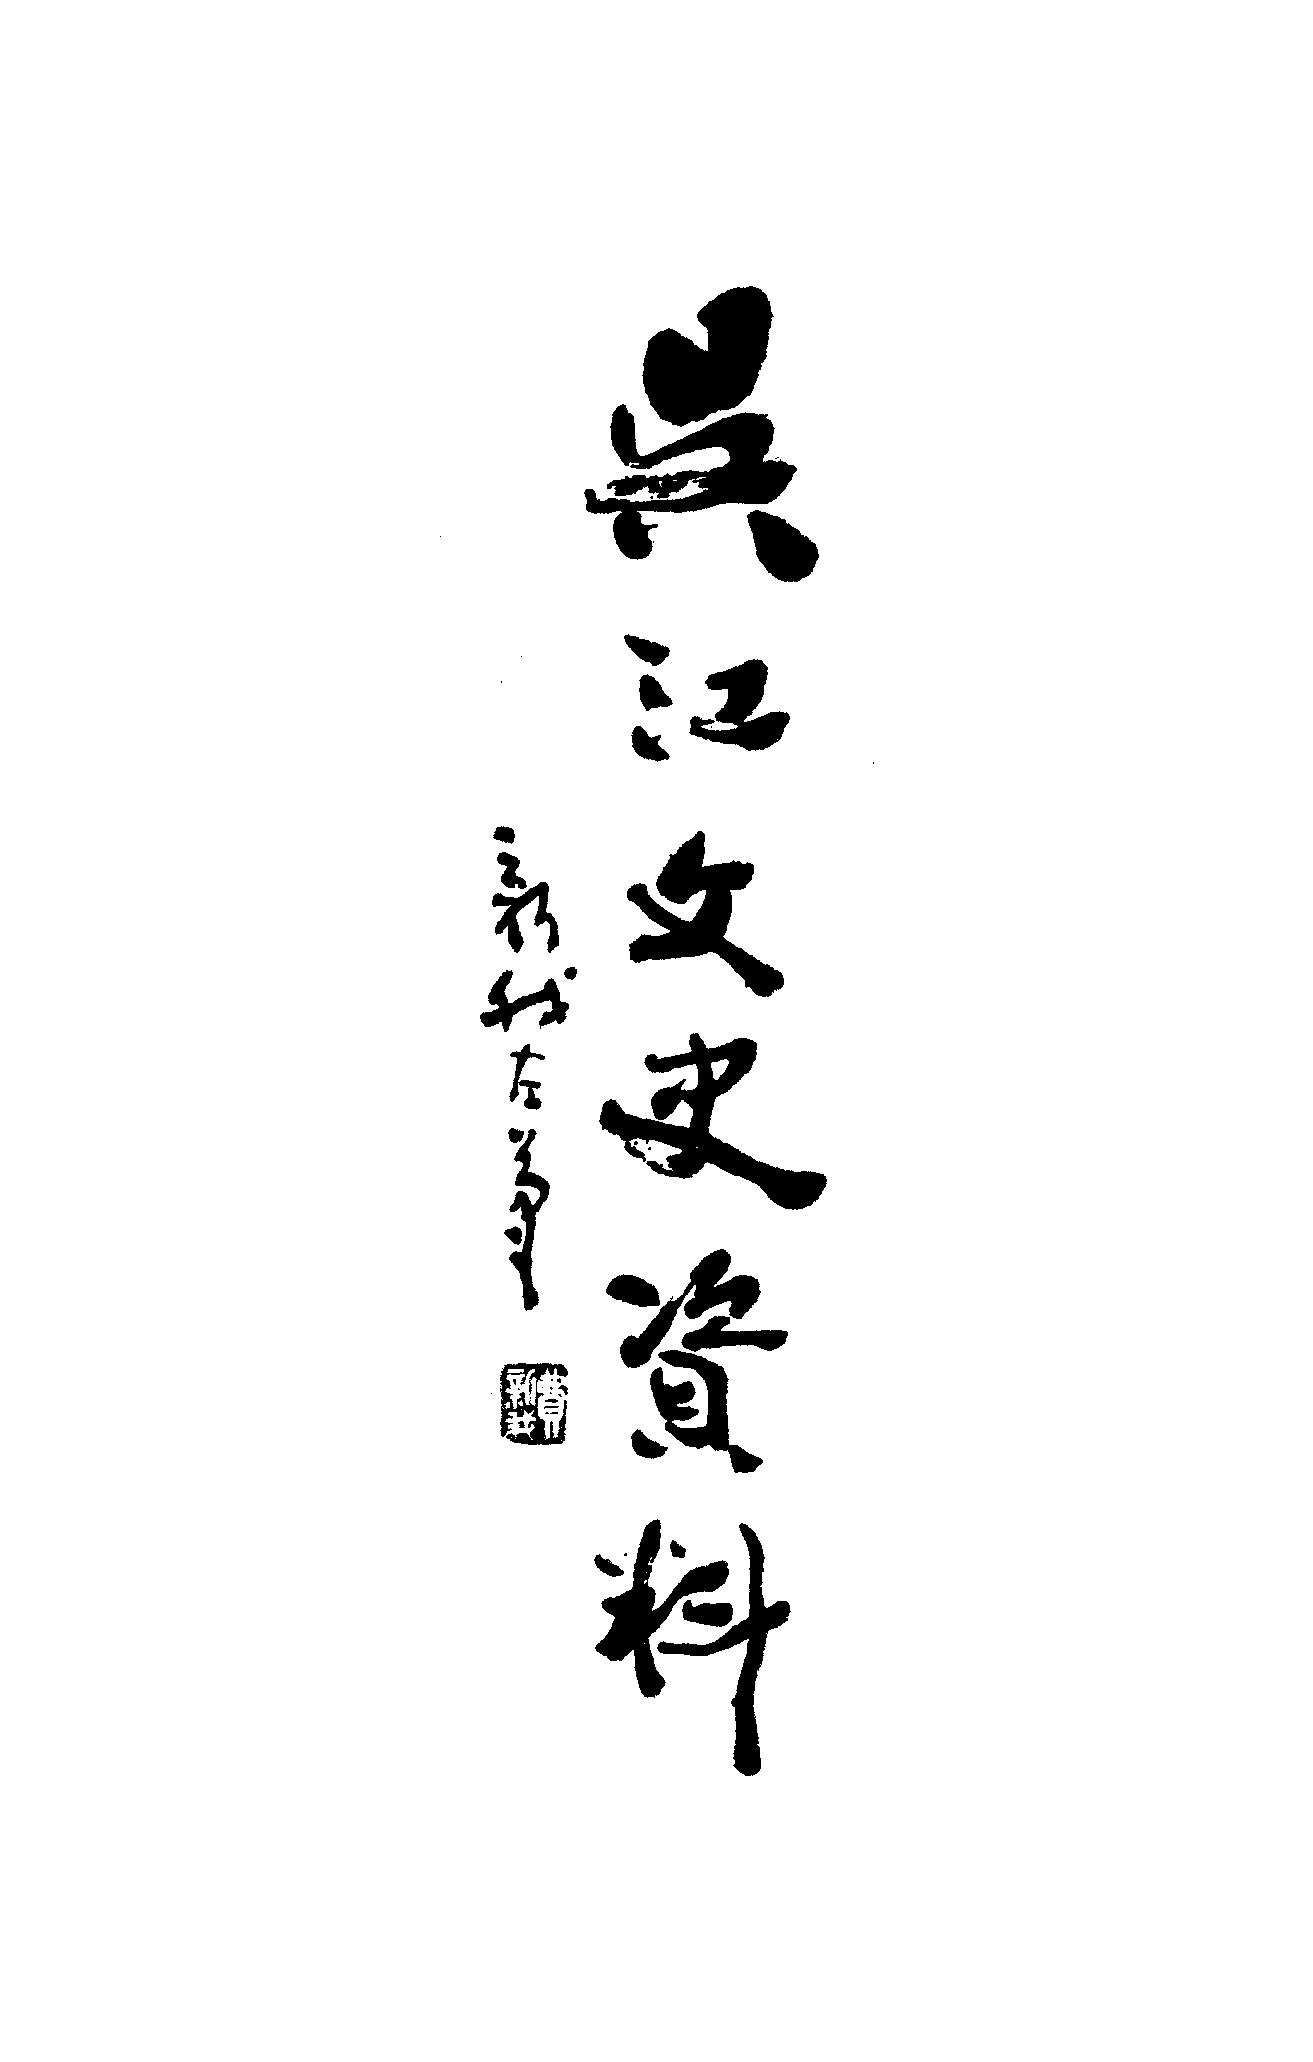 吳江文史資料
新我左筆
費新我